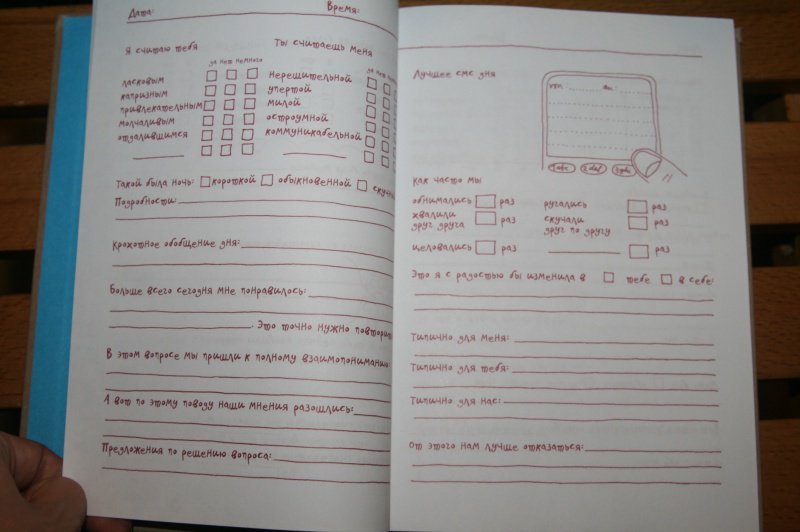 Дата: Время:
Я считаю тебя
да нет немного
ласковым
капризным
привлекательным
молчаливым
отдалившимся
Ты считаешь меня
да нет
нерешительной
упертой
милой
остроумной
коммуникабельной
Такой была ночь: короткой обыкновенной
Подробности:
Крохотное обобщение дня:
Больше всего сегодня мне понравилось:
. Это точно нужно
В этом вопросе мы пришли к полному взаимопониманию:
А вот по этому поводу наши мнения разошлись:
Предложения по решению вопроса:
Лучшее смс дня
1 abc 2 def 3 ghi
как часто мы
обнимались раз
хвалили
друг друга раз
целовались раз
ругались раз
скучали
друг по другу раз
раз
Это я с радостью бы изменила в тебе в себе:
Типично для меня:
Типично для тебя:
Типично для нас:
От этого нам лучше отказаться: